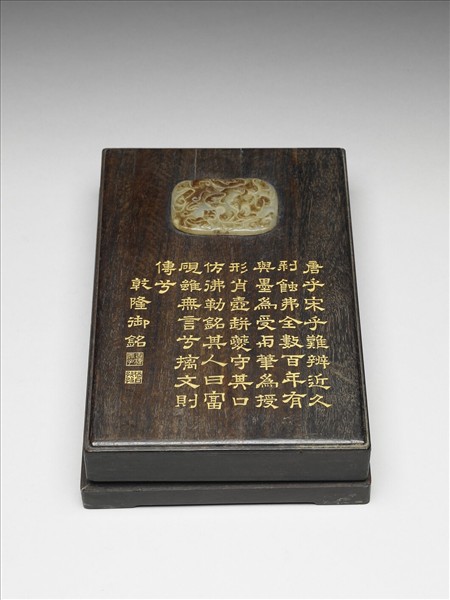 唐乎宋乎難辨近久
剥蝕弗全數百年有
與墨為受与筆為授
形肖壺缾夔守其口
仿彿勒銘其人曰富
硯雖無言兮摛文則
傳兮
乾隆御銘